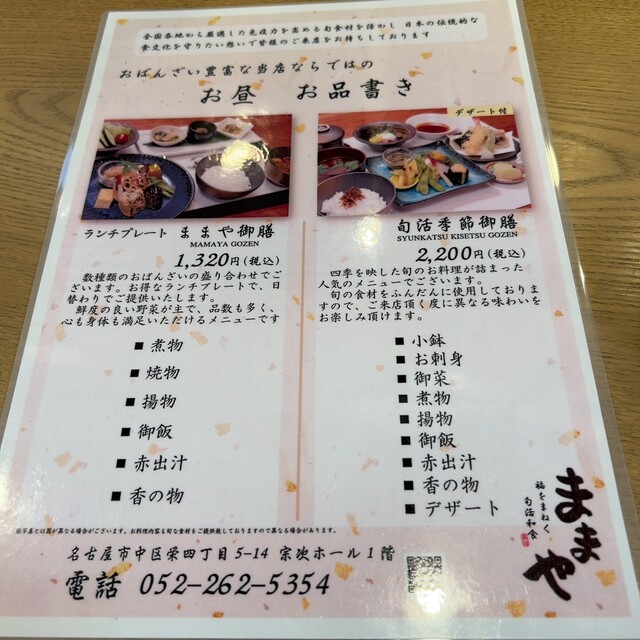 全国各地から厳選した免疫力を高める旬食材を活かし 日本の伝統的な
食文化を守りたい想いで皆様のご来店をお待ちしております
おばんざい豊富な当店ならではの
お昼 お品書き
デザート付
ランチプレート ままや御膳
MAMAYA GOZEN
1,320円(税込)
数種類のおばんざいの盛り合わせでご
ざいます。お得なランチプレートで、日
替わりでご提供いたします。
鮮度の良い野菜が主で、品数も多く、
心も身体も満足いただけるメニューです
■ 煮物
■ 焼物
■ 揚物
■ 御飯
■ 赤出汁
■ 香の物
旬活季節御膳
SYUNKATSU KISETSU GOZEN
2,200円(税込)
四季を映した旬のお料理が詰まった
人気のメニューでございます。
旬の食材をふんだんに使用しておりま
すので、ご来店頂く度に異なる味わいを
お楽しみ頂けます。
■ 小鉢
■ お刺身
■ 御菜
■ 煮物
■ 揚物
■ 御飯
■ 赤出汁
■ 香の物
■ デザート
※写真とは器が異なる場合がございます。お料理内容も旬な食材をご提供致しておりますので異なる場合があります。
福をまねく
旬活和食
ままや
名古屋市中区栄四丁目5-14 宗次ホール1階
電話 052-262-5354